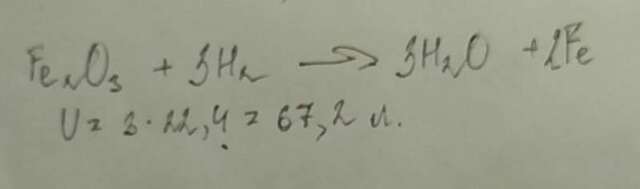 Fe₂O₃ + 3H₂ → 3H₂O + 2Fe
V = 3 · 22,4 = 67,2 л.